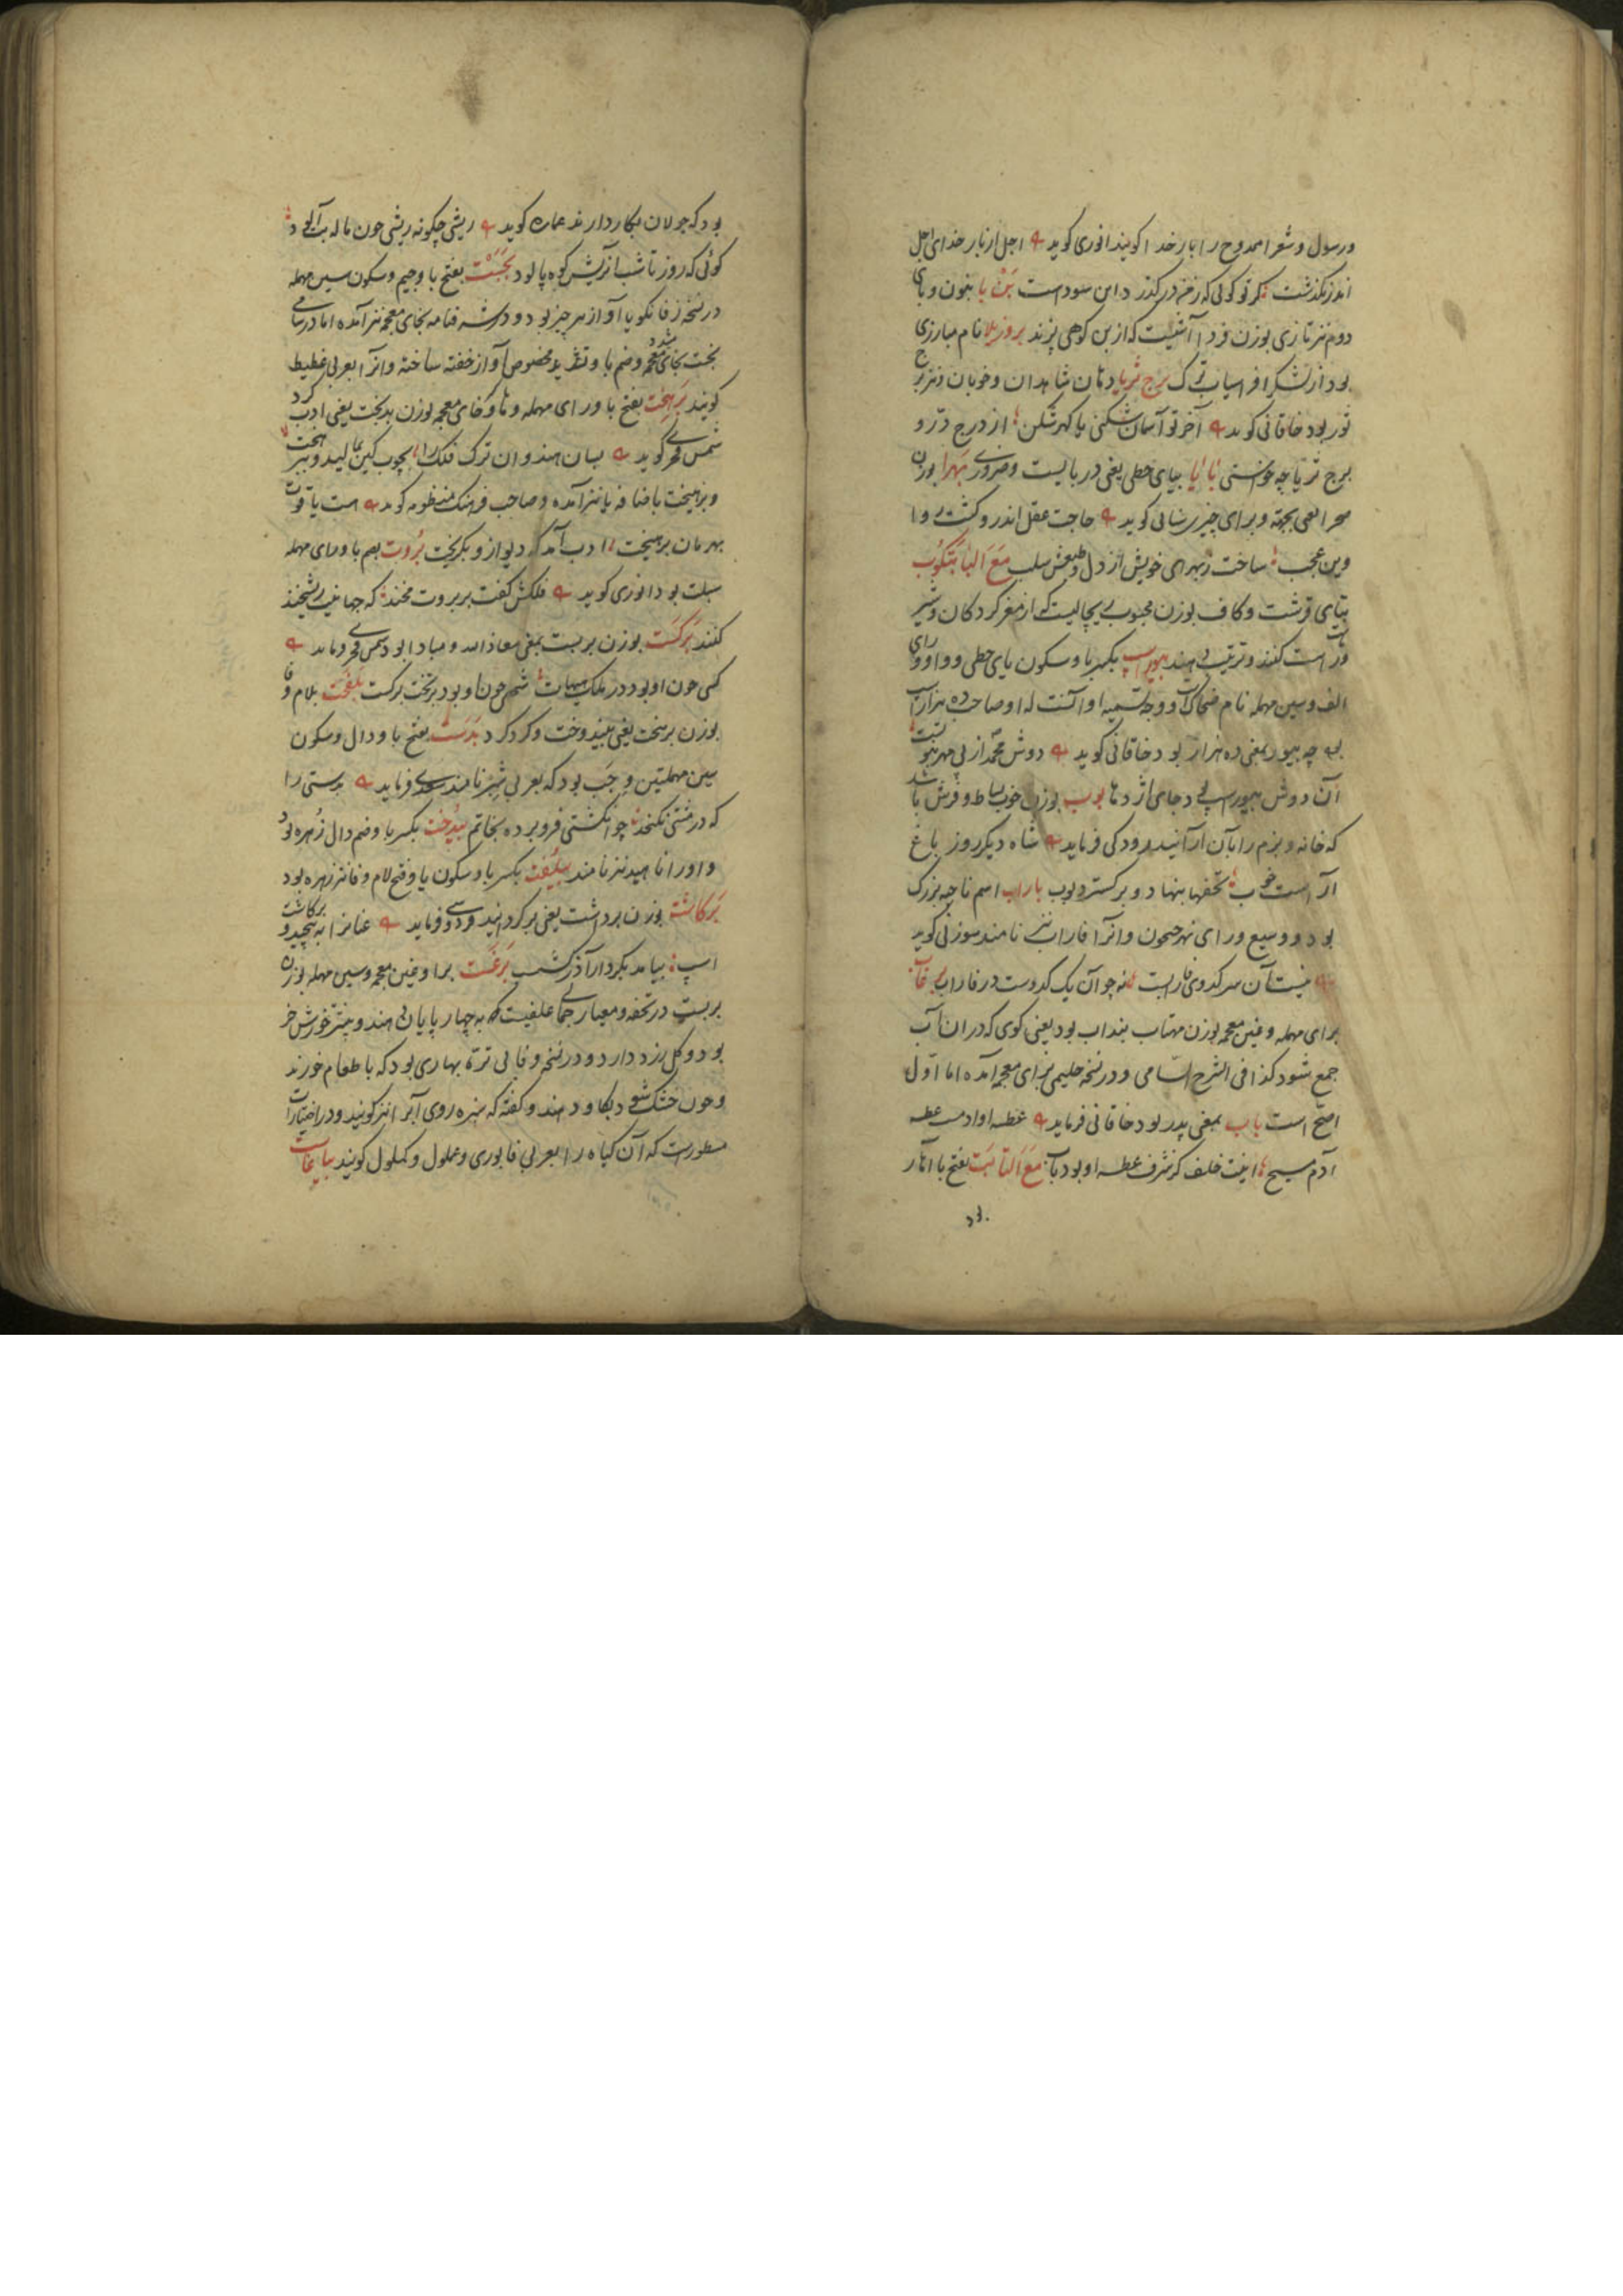 ورسول و شعرا ممدوح را بار خدا کویند انوری کوید اجل از بار خدای اجل
اندر نکذشت در این سوداست بن با بنون و بای
دوم نیز تازی بوزن فردا آشیست که از بن کوهی پزند بروزیلا نام مبارزی
بود از لشکر افراسیاب ترک برج ثریا دهان شاهدان و خوبان و نیز برج
ثور بود خاقانی کوید آخر تو آسمان شکنی یا کهر شکن از درج در و
برج ثریا چه خواستی بایا بیای حطی یعنی دربایست و ضروری بهرا بوزن
صحرا یعنی بجهته و برای چیزی سنائی کوید حاجت عقل اندرو کشت روا
وین عجب ساخت زبهرای خویش از دل و طبعش سلب مع البا بتکوب
بتای قرشت و کاف بوزن محبوب ریچالیست که از مغز کردکان و شیر
و ماست کنند و ترتیب دهند بیوراسب بکسر با و سکون یای حطی و واو و رای
الف و سین مهمله نام ضحاک و وجه تسمیه او آنست که او صاحب ده هزار اسب
بود چه بیور بمعنی ده هزار بود خاقانی کوید دوش محمد از پی مهر نبوتست
آن دوش بیوراسپ که بد جای اژدها بوب بوزن خوب بساط و فرش باشد
که خانه و بزم را بآن آرایند رودکی فرماید شاه دیکر روز باغ
آراست خوب تختها بنهاد و برکسترد بوب باراب اسم ناحیه بزرک
بود و وسیع ورای نهر جیحون و آنرا فاراب نیز نامند سوزنی کوید
نیست آن سر کدوی فارابست نه چو آن یک کدوست در فاراب برغاب
برای مهمله و غین معجمه بوزن مهتاب بنداب بود یعنی کوی که در آن آب
جمع شود کذا فی الشرح السامی و در نسخه حلیمی بزای معجمه آمده اما اول
اصح است باب بمعنی پدر بود خاقانی فرماید عطسه او آدمست عطسه
آدم مسیح اینت خلف کز شرف عطسه او بود باب مع التا بت بفتح با آهار
بود که جولاهان بکار دارند عماره کوید ریشی چکونه ریشی چون ماله بت آلود
کوئی که روز تا شب بر ریش کوه پالود بجست بفتح با و جیم و سکون سین مهمله
در نسخه زفانکویا آواز هر چیز بود و در شرفنامه بخای معجمه نیز آمده اما در سامی
بخست بخای معجمه و ضم با و تشدید مخصوص آواز خفته ساخته و آنرا بعربی غطیط
کویند برهخت بفتح با و رای مهمله و ها و خای معجمه بوزن بدبخت یعنی ادب کرد
شمس فخری کوید بسان هندوان ترک فلک را بچوب کین بمالید و برهخت
و برهیخت باضافه یا نیز آمده و صاحب فرهنک منظومه کوید هست یاقوت
بهرمان برهیخت ادب آمد که دیو ازو بکریخت بروت بضم با و رای مهمله
سبلت بود انوری کوید فلکش کفت بر بروت مخند که جهانیت ریشخند
کنند برکست بوزن بربست بمعنی معاذالله و مبادا بود شمس فخری فرماید
کسی چون او بود در ملک هیهات شهی چون او بود بر تخت برکست بلفخت بلام و فا
بوزن برسخت یعنی بیندوخت و کرد کرد بدست بفتح با و دال و سکون
سین مهملتین وجب بود که بعربی شبر نامند سعدی فرماید بدستی را
که در مشتی نکنجد چو انکشتی فرو برده بخاتم بیدخت بکسر با و ضم دال زهره بود
و او را ناهید نیز نامند بیلفت بکسر با و سکون یا و فتح لام و فا نیز زهره بود
برکاشت بوزن برداشت یعنی برکردانید فردوسی فرماید عنانرا بپیچید و برکاشت
اسپ بیامد بکردار آذرکشسب برغست برا و غین معجمه و سین مهمله بوزن
بربست در تحفه و معیار جمالی علفیست که بچهارپایان دهند و بیشتر خورش خر
بود و کل زرد دارد و در نسخه وفائی تره بهاری بود که با طعام خورند
و چون خشک شود بکاو دهند و کفته که سبزه روی آب را نیز کویند و در اختیارات
مسطورست که آن کیاه را بعربی قنابری و غملول و کملول کویند